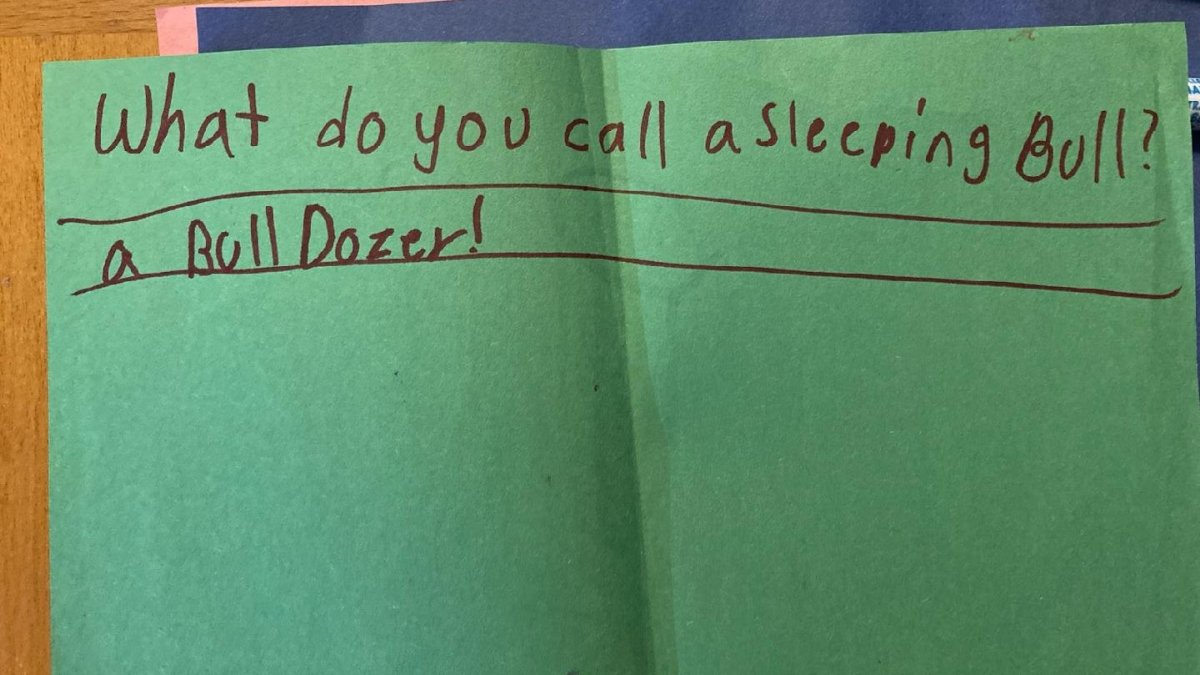 What do you call a sleeping Bull?
a Bull Dozer!